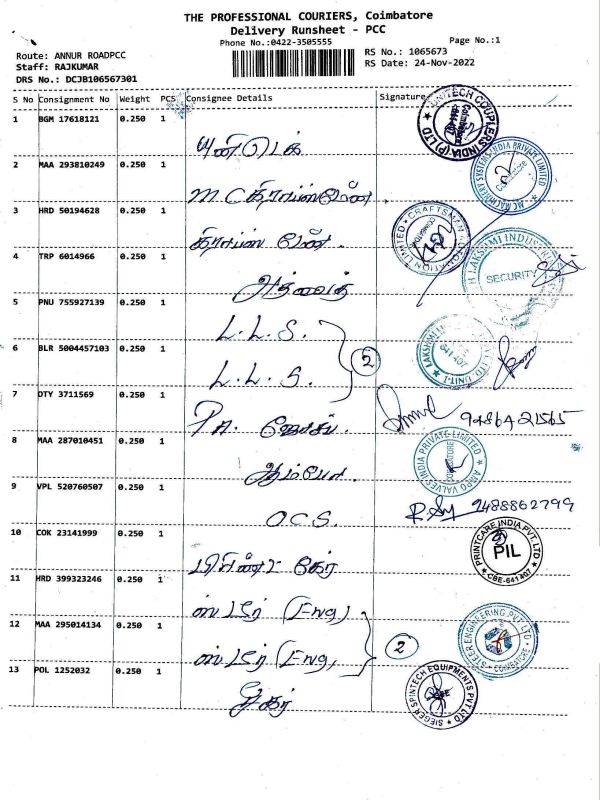 THE PROFESSIONAL COURIERS, Coimbatore
Delivery Runsheet - PCC
Phone No.:0422-3505555
Page No.:1
Route: ANNUR ROADPCC
Staff: RAJKUMAR
DRS No.: DCJB106567301
RS No.: 1065673
RS Date: 24-Nov-2022
S No Consignment No Weight PCS Consignee Details Signature
1 BGM 17618121 0.250 1
யுனிடெக்
UNITECH COUPLERS INDIA (P) LTD
2 MAA 293810249 0.250 1
M C
MC MACHINERY SYSTEMS INDIA PRIVATE LIMITED
3 HRD 50194628 0.250 1
CRAFTSMAN AUTOMATION LIMITED
4 TRP 6014966 0.250 1
LAKSHMI
SECURITY
5 PNU 755927139 0.250 1
L.L.S.
6 BLR 5004457103 0.250 1
L.L.S.
2
641 407
7 DTY 3711569 0.250 1
P.A.
9486421565
8 MAA 287010451 0.250 1
ஆம்போ
AMPO VALVES INDIA PRIVATE LIMITED
COIMBATORE
9 VPL 520760507 0.250 1
O.C.S.
9488862799
10 COK 23141999 0.250 1
பிரிண்ட் கேர்
PRINTCARE INDIA PVT. LTD
PIL
CBE-641 407
11 HRD 399323246 0.250 1
ஸ்டீர் (Eng)
12 MAA 295014134 0.250 1
ஸ்டீர் (Eng)
2
STEER ENGINEERING PVT. LTD
COIMBATORE
13 POL 1252032 0.250 1
SIEGER SPINTECH EQUIPMENTS PVT LTD